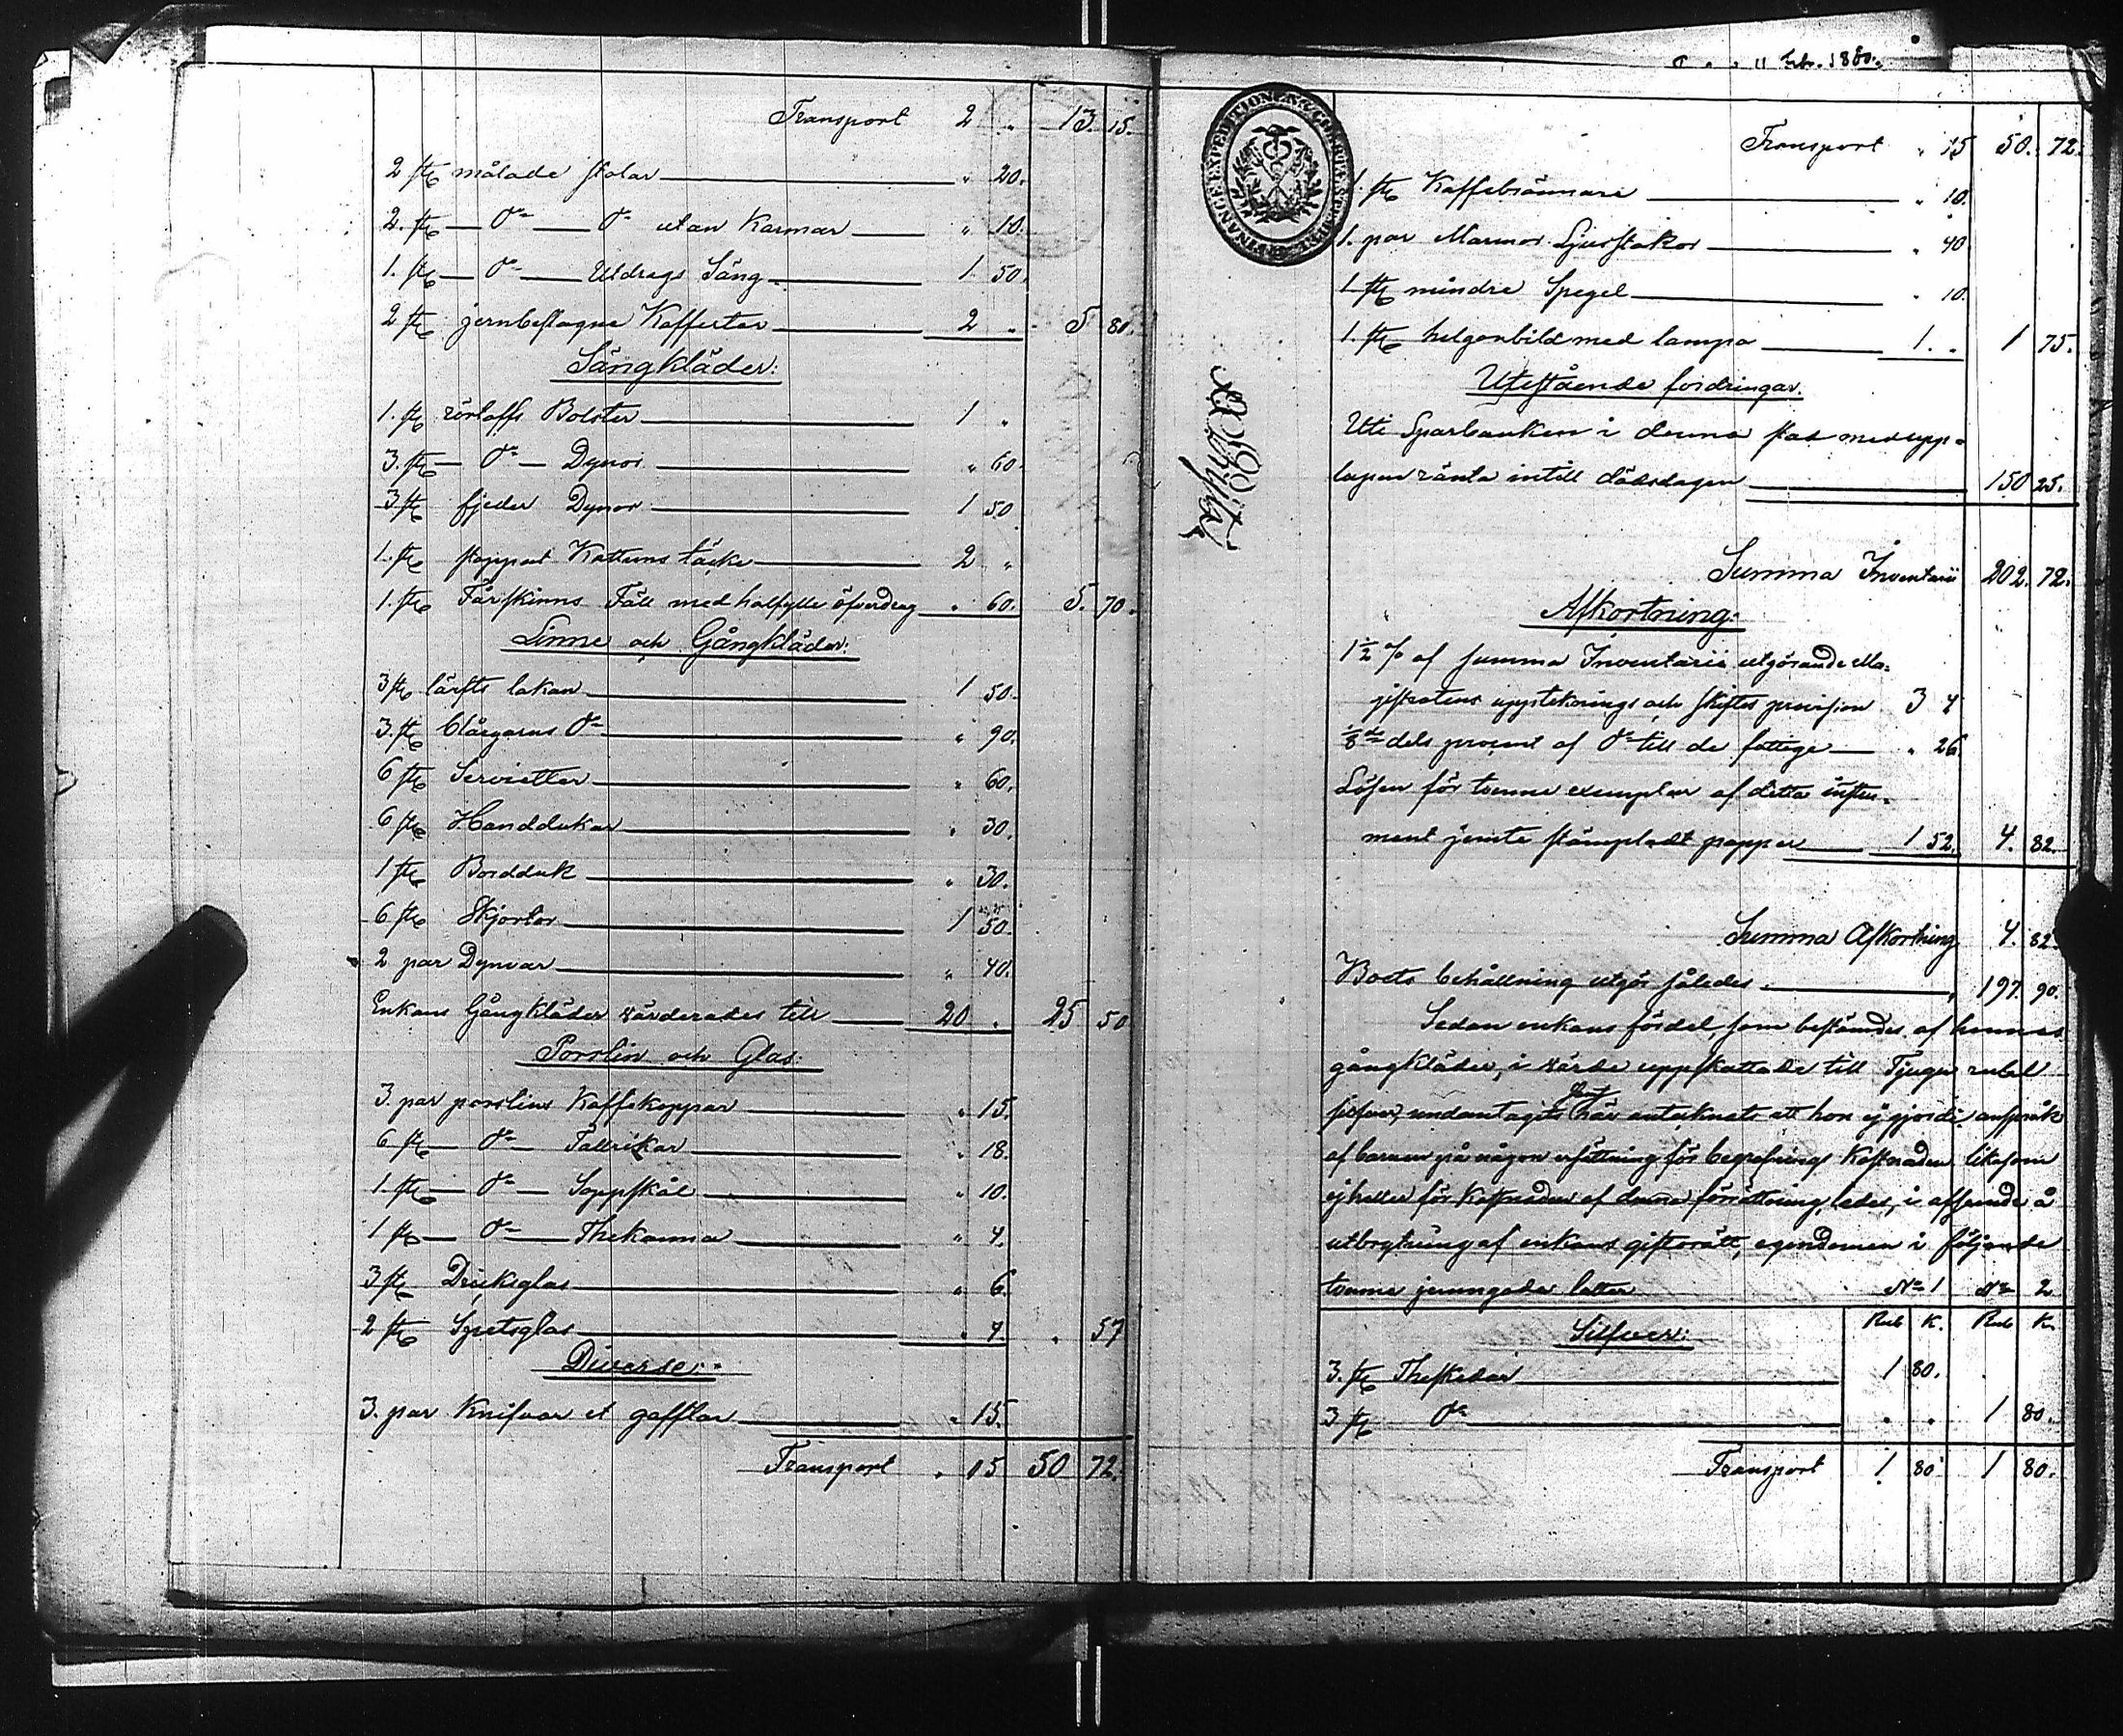 Transport 2 " 13. 15.
2 st målade stolar " 20.
2. st — Do — Do utan Karmar " 10.
1. st — Do — Utdrags Säng 1 50.
2 st jernbeslagne Kofferter 2 " 5 80.
Sängkläder:
1. st Bolster 1 "
3. st — Do — Dynor " 60.
3 st fjeder Dynor 1 50
1. st stoppat Kattuns täcke 2 "
1. st Fårskinns Fäll med halfylle öfverdrag " 60. 5. 70.
Linne och Gångkläder:
3 st lärfts lakan 1 50.
3. st blårgarns Do " 90.
6 st Servietter " 60.
6 st Handdukar " 30.
1 st Bordduk " 30.
6 st Skjortor 1 50.
2 par Dynvar " 40.
Enkans Gångkläder värderades till 20 " 25 50
Porslin och Glas:
3. par porslins Kaffekoppar " 15.
6 st — Do — Tallrikar " 18.
1. st — Do — Soppskål " 10.
1 st — Do — Thekanna " 4.
3 st Dricksglas " 6.
2 st Spetsglas " 4. " 57
Diverse:
3. par Knifvar et gafflar " 15.
Transport " 15 50 72.
Febr. 1880.
FINANCE EXPEDITIONEN
Transport " 15 50. 72.
1. st Kaffebrännare " 10.
1. par Marmor Ljusstakar " 40
1 st mindre Spegel " 10.
1. st helgonbild med lampa 1. " 1 75.
Utestående fordringar.
Uti Sparbanken i denna stad med upp-
lupen ränta intill dödsdagen 150 25.
Summa Inventarii 202. 72.
Afkortning:
1 1/2 % af summa Inventarii utgörande Ma-
gistratens uppteknings och skiftes provision 3 4
1/8 dels procent af Do till de fattige " 26
Lösen för tvenne exemplar af detta instru-
ment jemte stämpladt papper 1 52. 4. 82.
Summa Afkortning 4. 82.
Boets behållning utgör således 197. 90.
Sedan enkans fördel, som bestämdes af hennes
gångkläder, i värde uppskattade till Tjugu rubel
silfver, undantagits här antecknats att hon ej gjorde anspråk
af barnen på någon ersättning för begrafnings Kostnaden likasom
ej heller för kostnaden af denna förrättning, i afseende å
utbrytning af enkans giftorätt, egendomen i följande
tvenne jemngoda lotter No 1 No 2
Silfver: Rub K. Rub K.
3. st Theskedar 1 80.
3 st Do " " 1 80.
Transport 1 80 1 80.